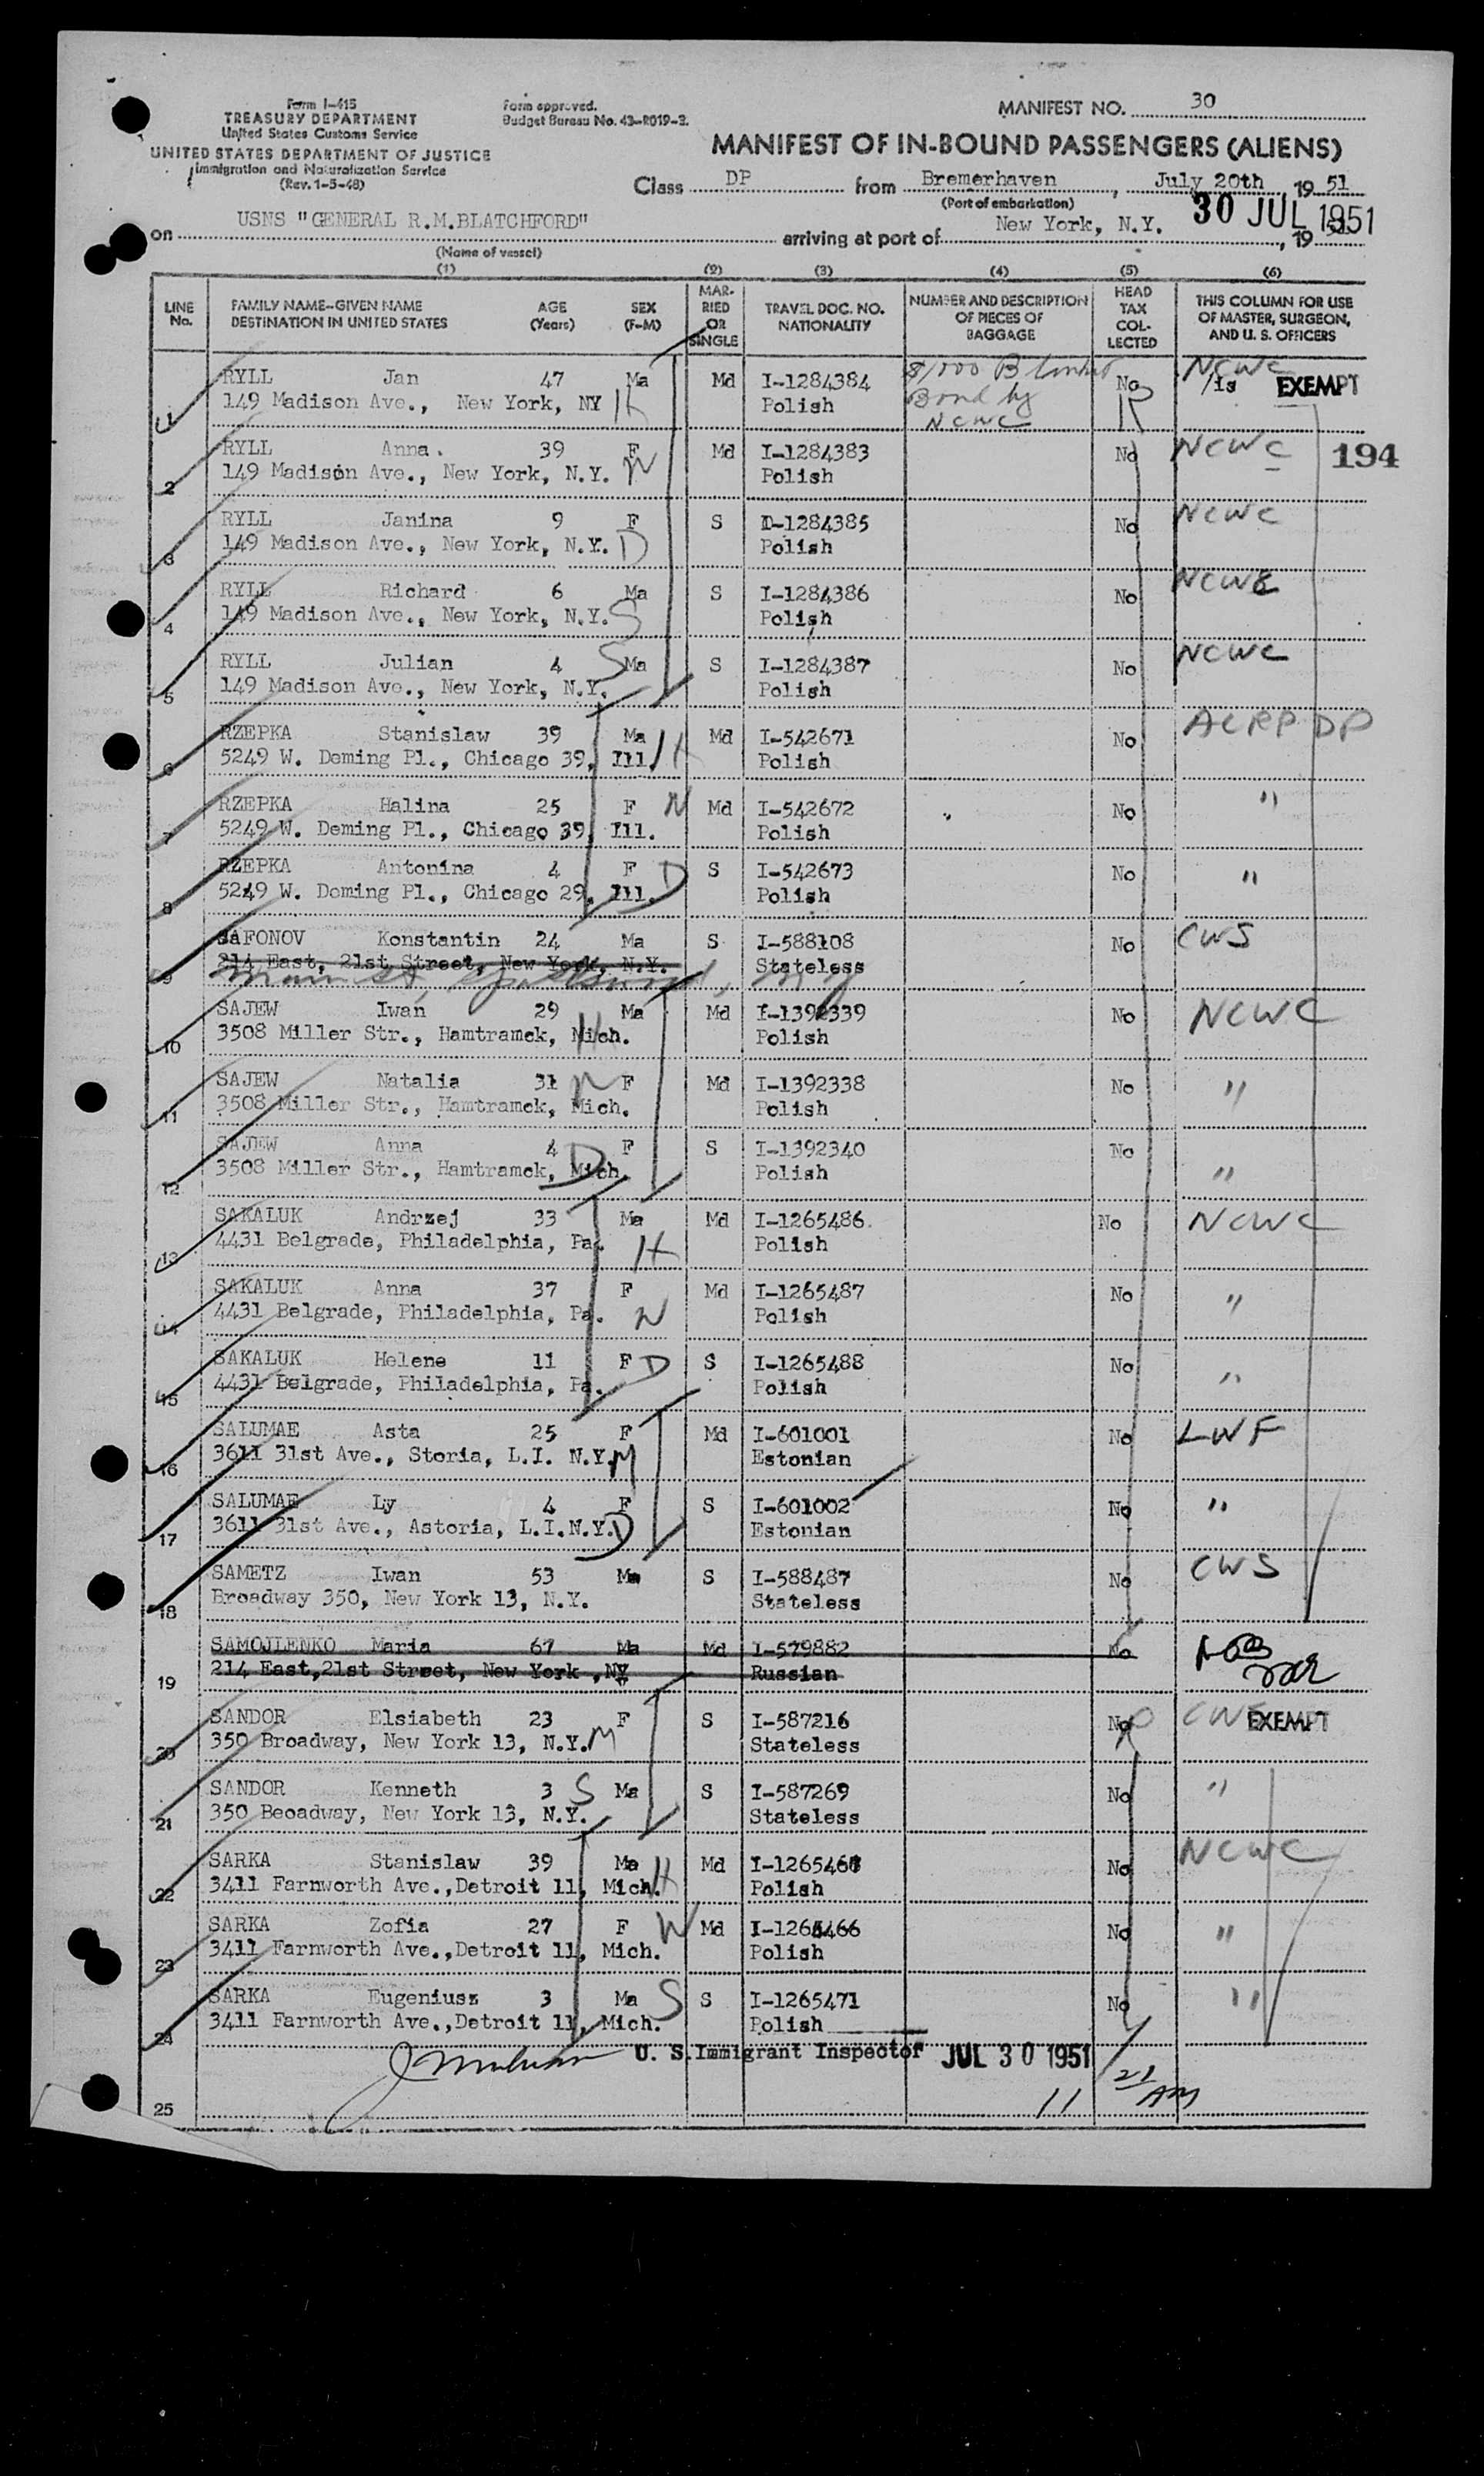 Form I-415
TREASURY DEPARTMENT
United States Customs Service
UNITED STATES DEPARTMENT OF JUSTICE
Immigration and Naturalization Service
(Rev. 1-5-48)
Form approved.
Budget Bureau No. 43-R019-2.
MANIFEST NO. 30
MANIFEST OF IN-BOUND PASSENGERS (ALIENS)
Class DP from Bremerhaven, July 20th 19 51
(Port of embarkation)
on USNS "GENERAL R.M.BLATCHFORD" arriving at port of New York, N.Y. 30 JUL 1951, 19
(Name of vessel)
(1) (2) (3) (4) (5) (6)
LINE No. FAMILY NAME-GIVEN NAME DESTINATION IN UNITED STATES AGE (Years) SEX (F-M) MAR-RIED OR SINGLE TRAVEL DOC. NO. NATIONALITY NUMBER AND DESCRIPTION OF PIECES OF BAGGAGE HEAD TAX COL-LECTED THIS COLUMN FOR USE OF MASTER, SURGEON, AND U. S. OFFICERS
1 RYLL Jan 47 Ma Md I-1284384 $1,000 Blanket No NCWC EXEMPT
149 Madison Ave., New York, NY H Polish Bond by NCWC
2 RYLL Anna. 39 F Md I-1284383 No NCWC 194
149 Madison Ave., New York, N.Y. W Polish
3 RYLL Janina 9 F S D-1284385 No NCWC
149 Madison Ave., New York, N.Y. D Polish
4 RYLL Richard 6 Ma S I-1284386 No NCWC
149 Madison Ave., New York, N.Y. S Polish
5 RYLL Julian 4 S Ma S I-1284387 No NCWC
149 Madison Ave., New York, N.Y. Polish
6 RZEPKA Stanislaw 39 Ma Md I-542671 No ACRP DP
5249 W. Deming Pl., Chicago 39, Ill. H Polish
7 RZEPKA Halina 25 F W Md I-542672 No "
5249 W. Deming Pl., Chicago 39, Ill. Polish
8 RZEPKA Antonina 4 F D S I-542673 No "
5249 W. Doming Pl., Chicago 29, Ill. Polish
9 SAFONOV Konstantin 24 Ma S I-588108 No CWS
214 East, 21st Street, New York, N.Y. Stateless
Main St,
10 SAJEW Iwan 29 Ma Md I-1392339 No NCWC
3508 Miller Str., Hamtramck, Mich. H Polish
11 SAJEW Natalia 31 W F Md I-1392338 No "
3508 Miller Str., Hamtramck, Mich. Polish
12 SAJEW Anna 4 F S I-1392340 No "
3508 Miller Str., Hamtramck, Mich. D Polish
13 SAKALUK Andrzej 33 Ma Md I-1265486. No NCWC
4431 Belgrade, Philadelphia, Pa. H Polish
14 SAKALUK Anna 37 F Md I-1265487 No "
4431 Belgrade, Philadelphia, Pa. W Polish
15 SAKALUK Helene 11 F D S I-1265488 No "
4431 Belgrade, Philadelphia, Pa. Polish
16 SALUMAE Asta 25 F Md I-601001 No LWF
3611 31st Ave., Storia, L.I. N.Y. M Estonian
17 SALUMAE Ly 4 F S I-601002 No "
3611 31st Ave., Astoria, L.I.N.Y. D Estonian
18 SAMETZ Iwan 53 Ma S I-588487 No CWS
Broadway 350, New York 13, N.Y. Stateless
19 SAMOJLENKO Maria 67 Ma Md I-579882 No
214 East,21st Street, New York ,NY Russian
20 SANDOR Elsiabeth 23 F S I-587216 No CWS EXEMPT
350 Broadway, New York 13, N.Y. M Stateless
21 SANDOR Kenneth 3 S Ma S I-587269 No "
350 Beoadway, New York 13, N.Y. Stateless
22 SARKA Stanislaw 39 Ma Md No NCWC
3411 Farnworth Ave.,Detroit 11, Mich. H Polish
23 SARKA Zofia 27 F W Md I-1265466 No "
3411 Farnworth Ave.,Detroit 11, Mich. Polish
24 SARKA Eugeniusz 3 Ma S S I-1265471 No "
3411 Farnworth Ave.,Detroit 11, Mich. Polish
U. S. Immigrant Inspector JUL 30 1951
25 11 21 AM